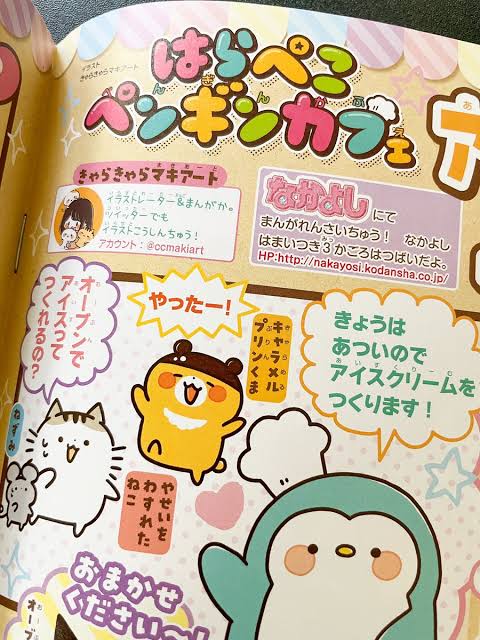 イラスト
きゃらきゃらマキアート
はらぺこ
ペンギンカフェ
きゃらきゃらマキアート
イラストレーター&まんがか。
ツイッターでも
イラストこうしんちゅう!
アカウント:@ccmakiart
なかよし にて
まんがれんさいちゅう! なかよし
はまいつき3かごろはつばいだよ。
HP:http://nakayosi.kodansha.co.jp/
きょうは
あついので
アイスクリームを
つくります!
キャラメル
プリンくま
やったー!
オーブンで
アイスって
つくれるの?
ねずみ
やせいを
わすれた
ねこ
おまかせ
ください〜!
オーブ